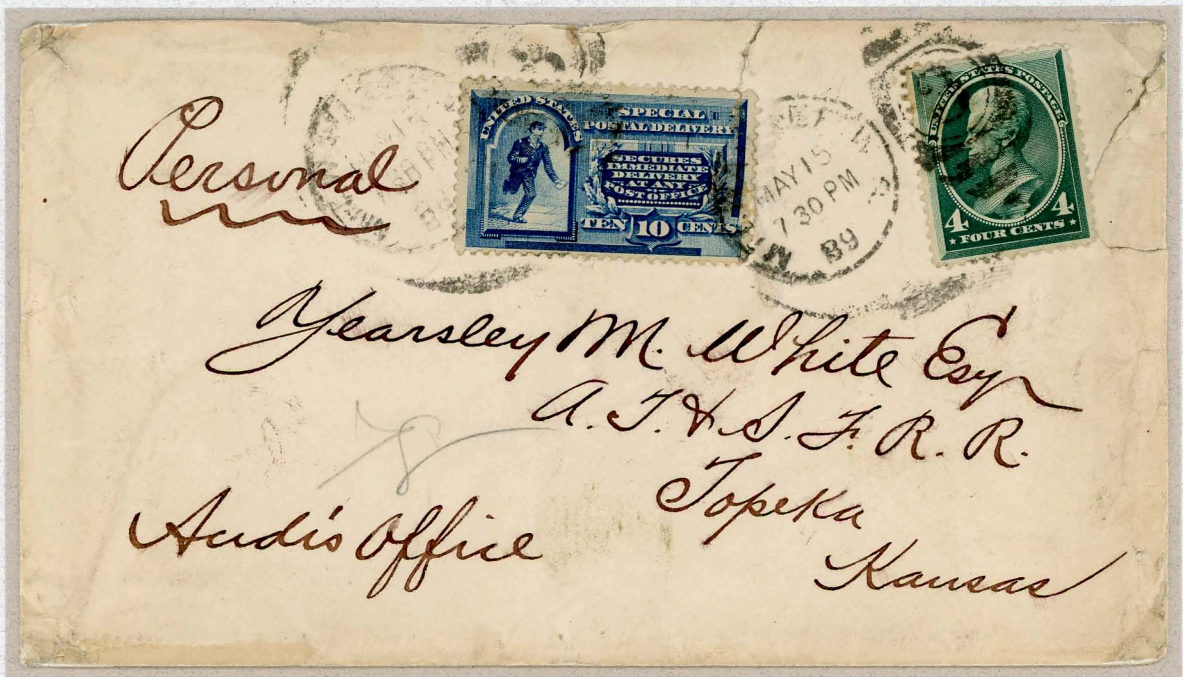 Personal
UNITED STATES
SPECIAL
POSTAL DELIVERY
SECURES
IMMEDIATE
DELIVERY
AT ANY
POST OFFICE
TEN 10 CENTS
MAY 15
7 30 PM
89
UNITED STATES POSTAGE
4 4
FOUR CENTS
Yearsley M. White Esq
A. T. & S. F. R. R.
Topeka
Kansas
78
Aud's Office